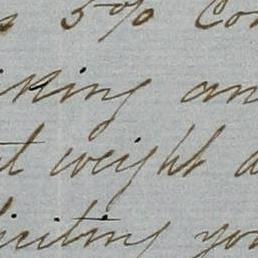 5% Co
king an
weight
iciting yo